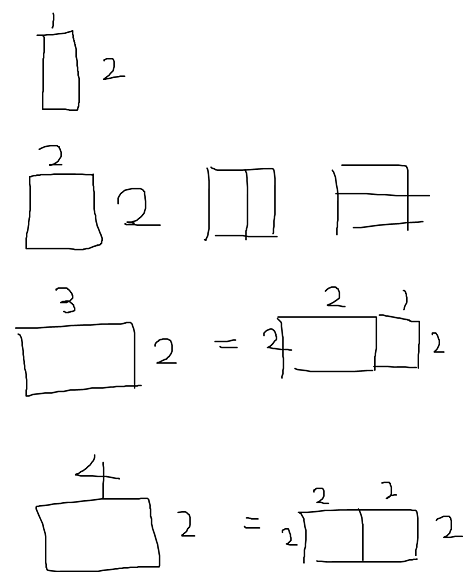 1
2
2
2
3
2 = 2
2 1
2
4
2 = 2
2 2
2